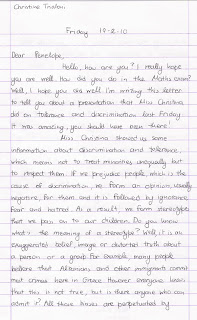 Christine
Friday 19-2-10
Dear Penelope,
Hello, how are you? I really hope
you are well. How did you do in the Maths exam?
Well, I hope you did well. I'm writing this letter
to tell you about a presentation that Miss Christina
did on tolerance and discrimination last Friday.
It was amazing, you should have been there!
Miss Christina showed us some
information about discrimination and tolerance,
which means not to treat minorities unequally but
to respect them. If we prejudice people, which is the
cause of discrimination, we form an opinion, usually
negative, for them and it is followed by ignorance,
fear and hatred. As a result, we form stereotypes
that we pass on to our children. Do you know
what's the meaning of a stereotype? Well, it is an
exaggerated belief, image or distorted truth about
a person or a group. For example, many people
believe that Albanians and other immigrants commit
most crimes here in Greece. However everyone knows
that this is not true, but is there anyone who can
admit it? All those biases are perpetuated by